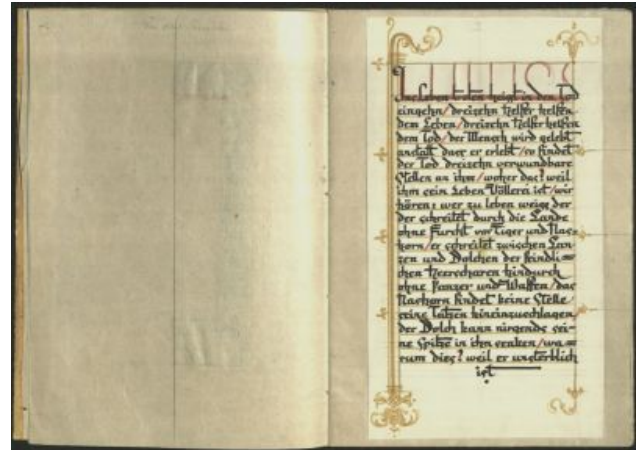 Ins Leben treten heißt in den Tod
eingehn / dreizehn Helfer helfen
dem Leben / dreizehn Helfer helfen
dem Tod / der Mensch wird gelebt
anstatt dass er erlebt / so findet
der Tod dreizehn verwundbare
Stellen an ihm / woher das? weil
ihm sein Leben Völlerei ist / wir
hören: wer zu leben weiss der
der schreitet durch die Lande
ohne Furcht vor Tiger und Nas-
horn / er schreitet zwischen Lan-
zen und Dolchen der feindli=
chen Heerscharen hindurch
ohne Panzer und Waffen / das
Nashorn findet keine Stelle /
seine Tatzen hineinzuschlagen /
der Dolch kann nirgends sei-
ne Spitze in ihn senken / wa=
rum dies? weil er unsterblich
ist